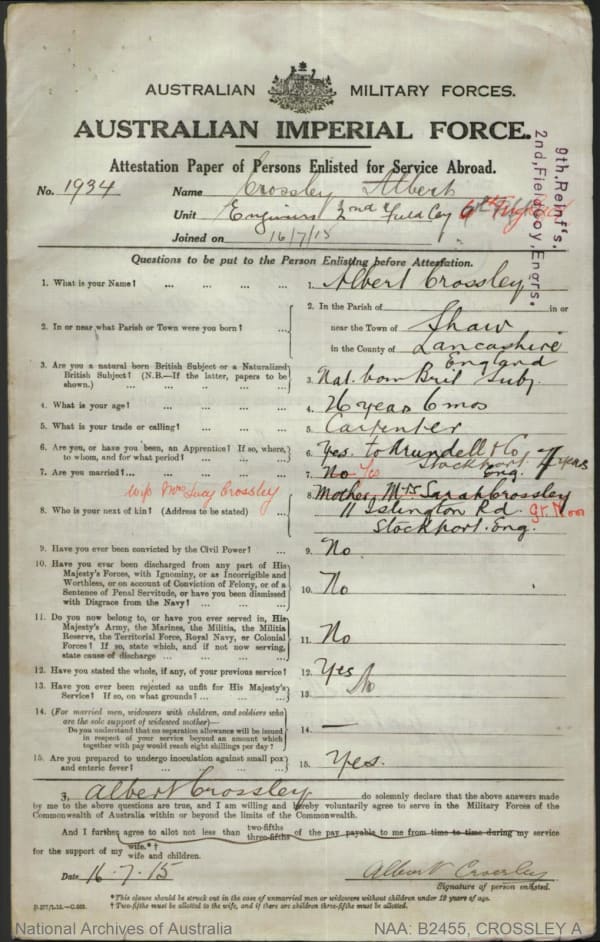 AUSTRALIAN MILITARY FORCES.
AUSTRALIAN IMPERIAL FORCE.
Attestation Paper of Persons Enlisted for Service Abroad.
9th. Reinf's,
2nd, Field Coy, Engrs.
No. 1934 Name Crossley Albert
Unit Engineers 2nd Field Coy
Joined on 16/7/15
Questions to be put to the Person Enlisting before Attestation.
1. What is your Name? ... 1. Albert Crossley
2. In or near what Parish or Town were you born? ... 2. In the Parish of in or
near the Town of Shaw
in the County of Lancashire
England
3. Are you a natural born British Subject or a Naturalized
British Subject? (N.B.—If the latter, papers to be
shown.) ... 3. Nat. born Brit Subj.
4. What is your age? ... 4. 26 years 6 mos
5. What is your trade or calling? ... 5. Carpenter
6. Are you, or have you been, an Apprentice? If so, where,
to whom, and for what period? ... 6. Yes. to Arundell & Co
Stockport. Eng. 7 years
7. Are you married? ... 7. No Yes
wife Mrs Lucy Crossley
8. Who is your next of kin? (Address to be stated) ... 8. Mother, Mrs Sarah Crossley
11 Islington Rd. Gt. Moor
Stockport. Eng.
9. Have you ever been convicted by the Civil Power? ... 9. No
10. Have you ever been discharged from any part of His
Majesty's Forces, with Ignominy, or as Incorrigible and
Worthless, or on account of Conviction of Felony, or of a
Sentence of Penal Servitude, or have you been dismissed
with Disgrace from the Navy? ... 10. No
11. Do you now belong to, or have you ever served in, His
Majesty's Army, the Marines, the Militia, the Militia
Reserve, the Territorial Force, Royal Navy, or Colonial
Forces? If so, state which, and if not now serving,
state cause of discharge ... 11. No
12. Have you stated the whole, if any, of your previous service? 12. Yes
13. Have you ever been rejected as unfit for His Majesty's
Service? If so, on what grounds? ... 13. No
14. (For married men, widowers with children, and soldiers who
are the sole support of widowed mother)—
Do you understand that no separation allowance will be issued
in respect of your service beyond an amount which
together with pay would reach eight shillings per day? 14. —
15. Are you prepared to undergo inoculation against small pox
and enteric fever? 15. Yes.
I, Albert Crossley do solemnly declare that the above answers made
by me to the above questions are true, and I am willing and hereby voluntarily agree to serve in the Military Forces of the
Commonwealth of Australia within or beyond the limits of the Commonwealth.
And I further agree to allot not less than two-fifths three-fifths of the pay payable to me from time to time during my service
for the support of my wife.*†
wife and children.
Date 16.7.15 Albert Crossley
Signature of person enlisted.
*This clause should be struck out in the case of unmarried men or widowers without children under 18 years of age.
† Two-fifths must be allotted to the wife, and if there are children three-fifths must be allotted.
National Archives of Australia NAA: B2455, CROSSLEY A